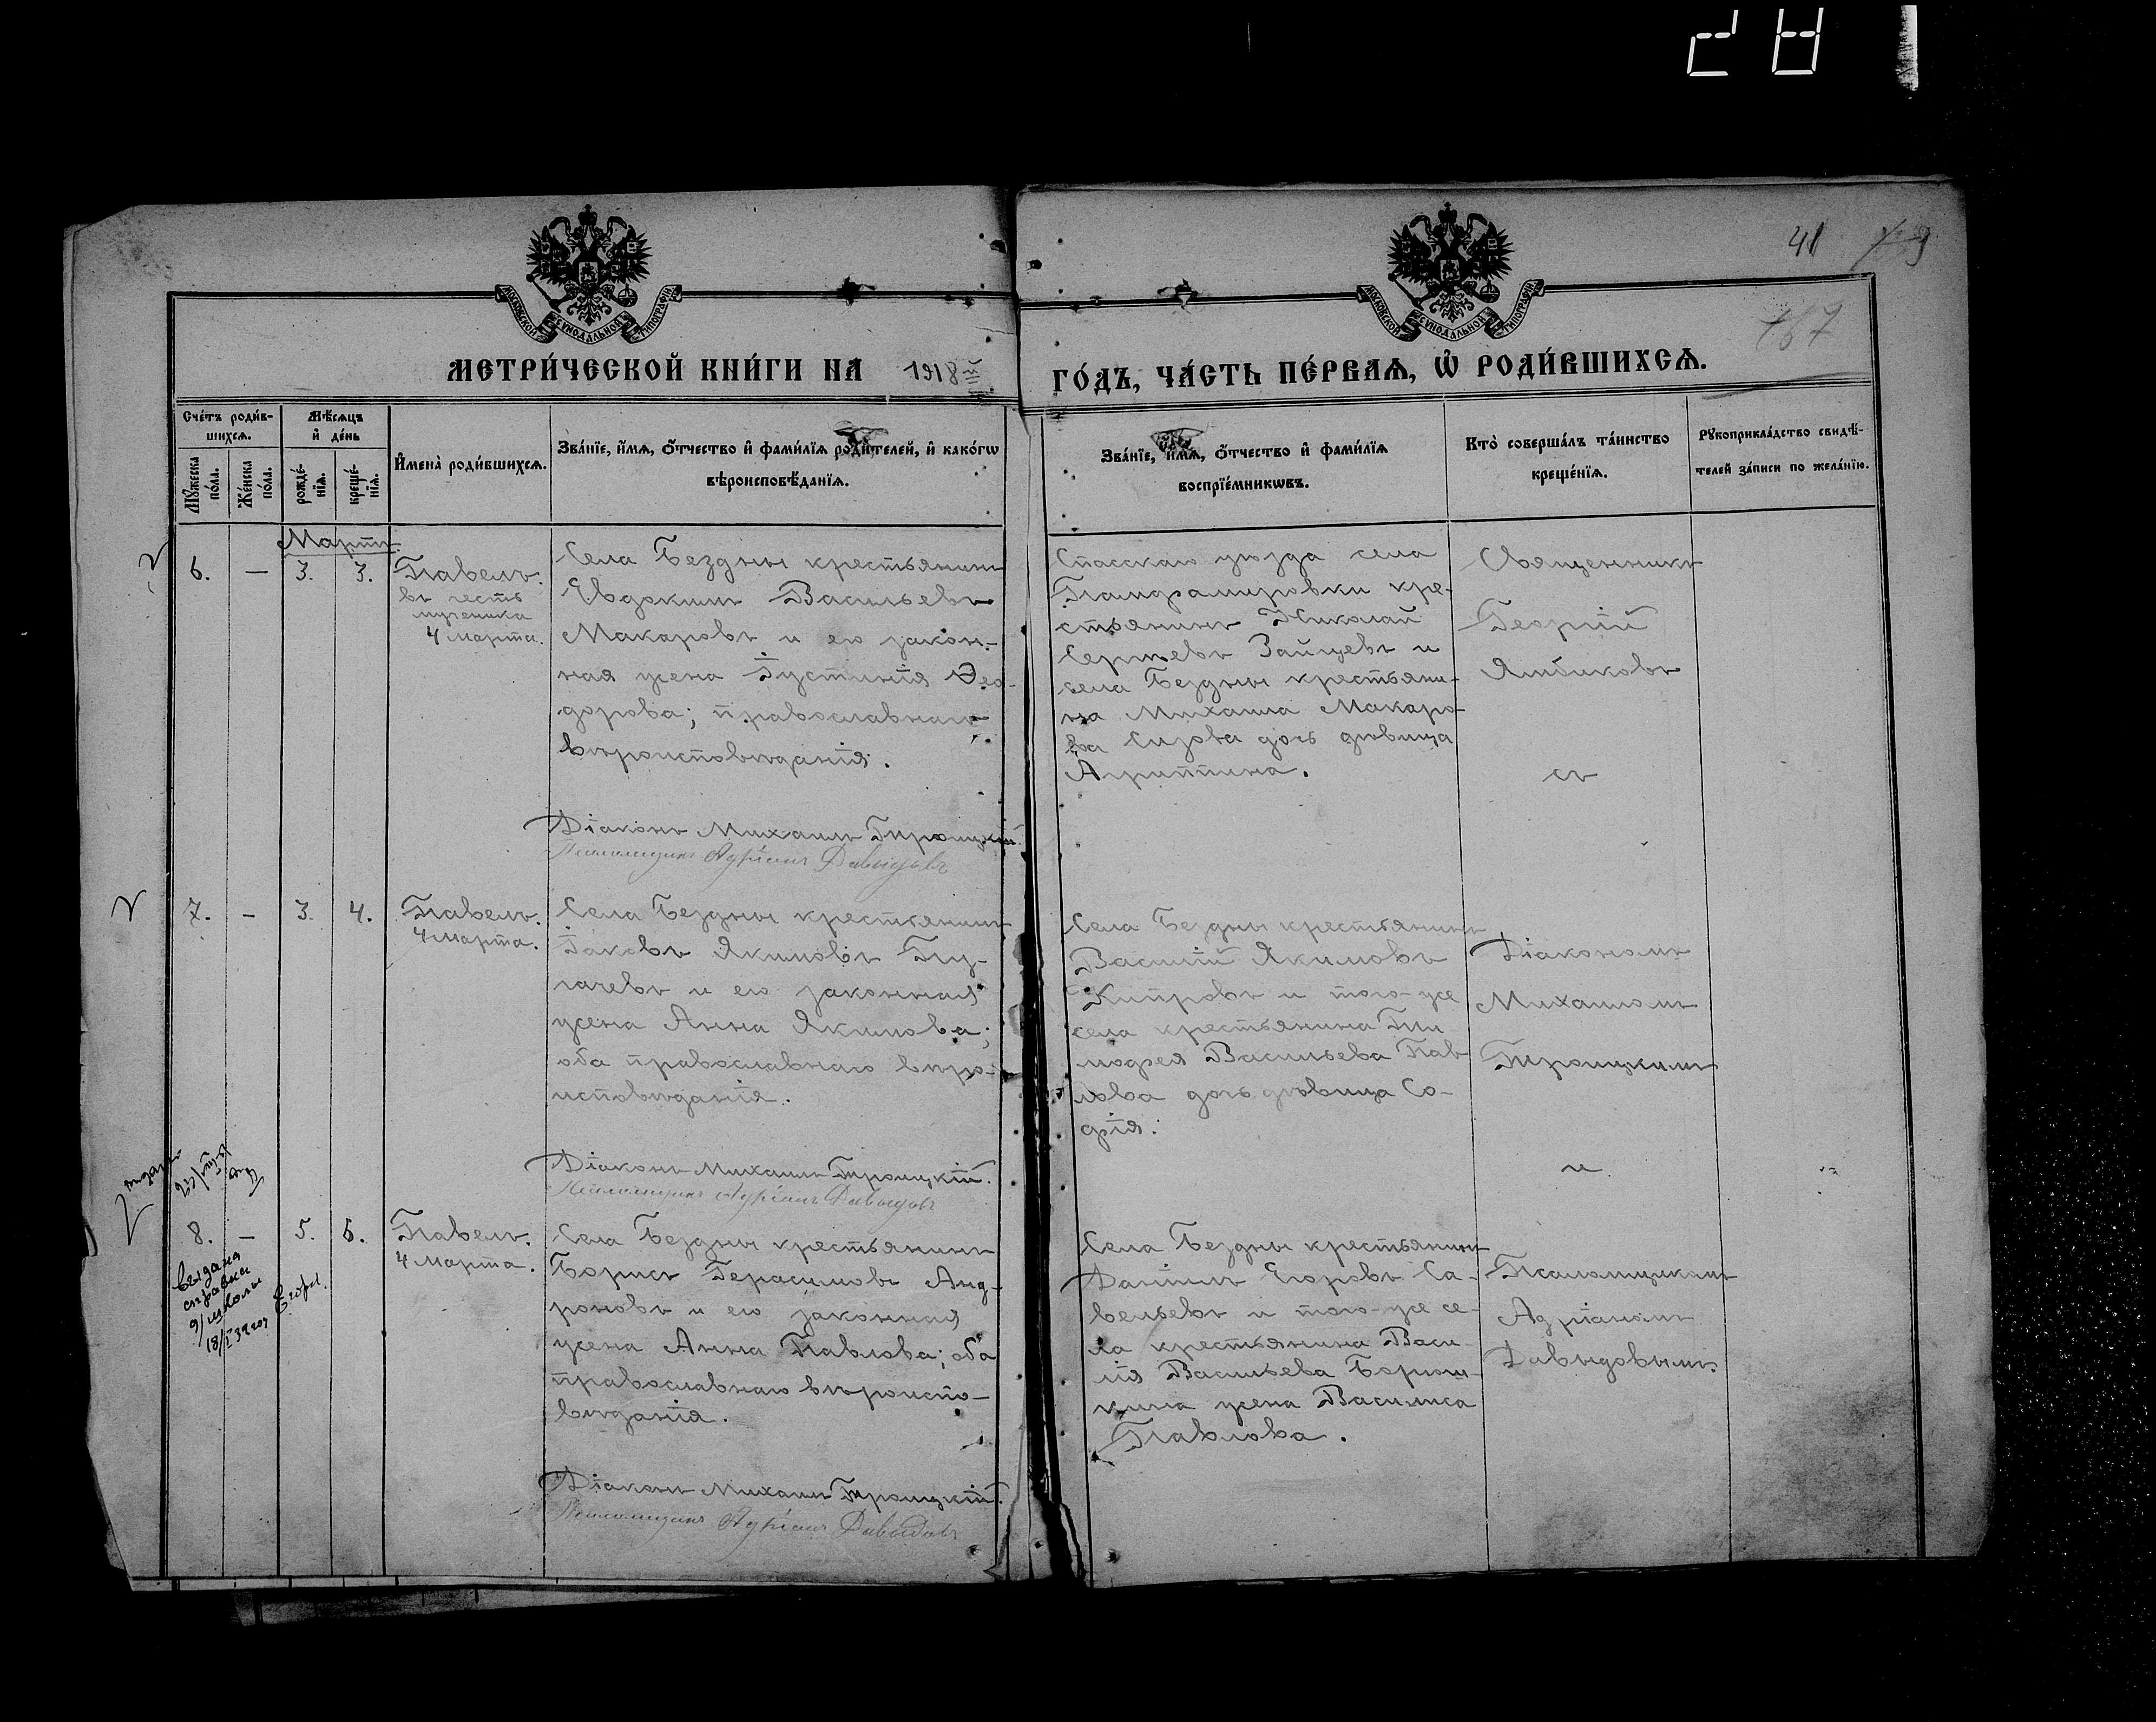 281
41
167
МОСКОВСКОЙ СѴНОДАЛЬНОЙ ТИПОГРАФІИ
МОСКОВСКОЙ СѴНОДАЛЬНОЙ ТИПОГРАФІИ
МЕТРИ́ЧЕСКОЙ КНИ́ГИ НА 1918й
ГО́ДЪ, ЧА́СТЬ ПЕ́РВАѦ, Ѡ҆ РОДИ́ВШИХСѦ.
Сче́тъ роди́в-
шихсѧ.
Мѣ́сѧцъ
и҆ де́нь
Мꙋ́жеска по́ла.
Же́нска по́ла.
рожде́-
нїѧ.
креще́-
нїѧ.
И҆мена̀ роди́вшихсѧ.
Зва́нїе, и҆́мѧ, ѻ҆́тчество и҆ фами́лїѧ роди́телей, и҆ како́гѡ
вѣроисповѣ́данїѧ.
Зва́нїе, и҆́мѧ, ѻ҆́тчество и҆ фами́лїѧ
воспрїе́мникѡвъ.
Кто̀ соверша́лъ та́инство
креще́нїѧ.
Рꙋкоприкла́дство свидѣ́-
телей за́писи по жела́нїю.
Мартъ.
6. — 3. 3.
Павелъ.
въ честь
мученика
4 марта.
Села Бездны крестьянинъ
Евдокимъ Васильевъ
Макаровъ и его закон-
ная жена Іустинія Ѳео-
дорова; православнаго
вѣроисповѣданія.
Діаконъ Михаилъ Троицкій.
Псаломщикъ Адріанъ Давыдовъ
Спасскаго уѣзда села
кре-
стьянинъ Николай
Сергѣевъ Зайцевъ и
села Бездны крестьяни-
на Михаила Макаро-
ва Сизова дочь дѣвица
Агриппина.
Священникъ
Георгій
Ямбиковъ
съ
7. — 3. 4.
Павелъ.
4 марта.
Села Бездны крестьянинъ
Іаковъ Якимовъ Пу-
гачевъ и его законная
жена Анна Якимова;
оба православнаго вѣро-
исповѣданія.
Діаконъ Михаилъ Троицкій.
Псаломщикъ Адріанъ Давыдовъ
Села Бездны крестьянинъ
Василій Якимовъ
Кипровъ и того-же
села крестьянина Ти
моѳея Васильева Пав
лова дочь дѣвица Со-
фія.
Діакономъ
Михаиломъ
Троицкимъ
и
8. — 5. 6.
Выдана
справка
д/школы
18/I 39 год
Павелъ.
4 марта.
Села Бездны крестьянинъ
Борисъ Герасимовъ Анд-
роновъ и его законная
жена Анна Павлова; оба
православнаго вѣроиспо-
вѣданія.
Діаконъ Михаилъ Троицкій.
Псаломщикъ Адріанъ Давыдовъ
Села Бездны крестьянинъ
Даніилъ Егоровъ Са-
вельевъ и того-же се-
ла крестьянина Васи-
лія Васильева
жена Василиса
Павлова.
Псаломщикомъ
Адріаномъ
Давыдовымъ.